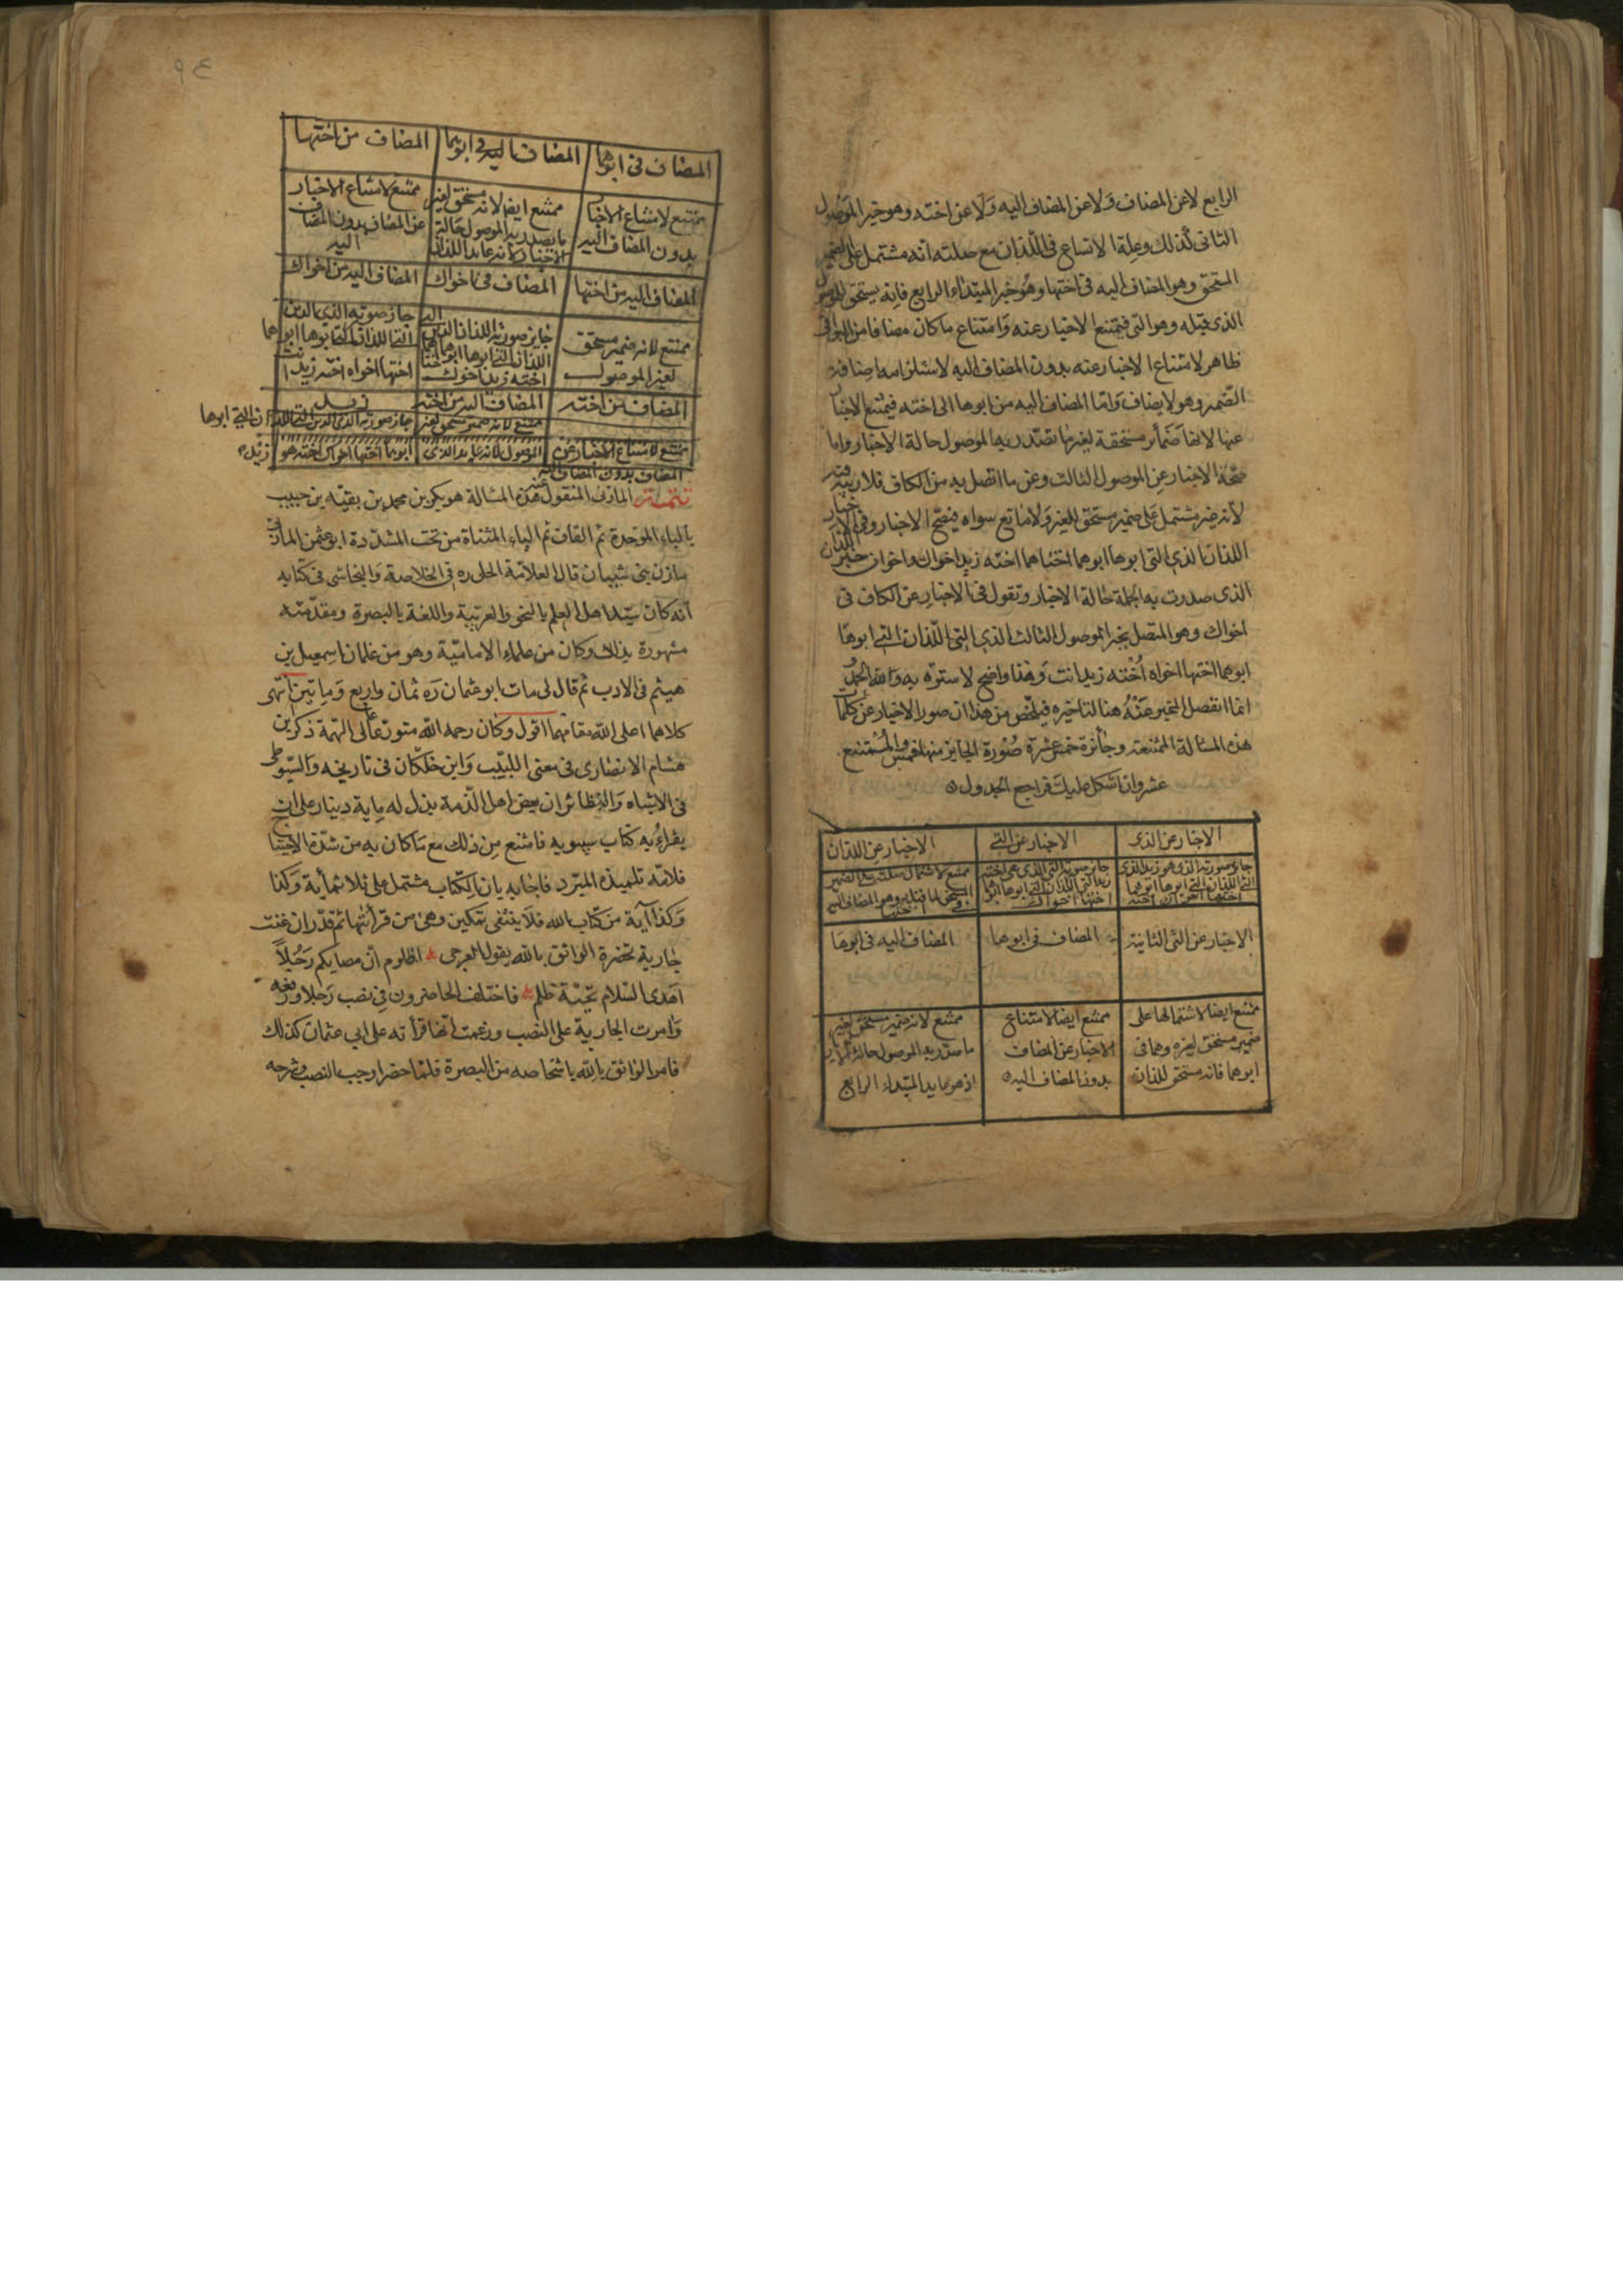 الرابع لا عن المضاف ولا عن المضاف اليه ولا عن اخته وهو خبر الموصول
الثاني كذلك وعلة الامتناع في اللذان مع صلته انه مشتمل على الضمير
المستحق وهو المضاف اليه في اختها وهو خبر المبتداء الرابع فانه يستحق للموصول
الذي قبله وهو التي فيمتنع الاخبار عنه وامتناع ما كان مضافا من البواقي
ظاهر لامتناع الاخبار عنه بدون المضاف اليه لاستلزامه اضافة
الضمير وهو لا يضاف واما المضاف اليه من ابوها الى اخته فيمتنع الاخبار
عنها لانها ضمائر مستحقة لغير ما تصدر به الموصول حالة الاخبار واما
صحة الاخبار عن الموصول الثالث وعن ما اتصل به من الكاف فلا ريب فيه
لانه غير مشتمل على ضمير مستحق للغير ولا مانع سواه فيصح الاخبار وفي الاخبار
اللذان الذي التي ابوها ابوهما اختاهما اخته زيد اخواك واخواك خبر اللذان
الذي صدرت به الجملة حالة الاخبار وتقول في الاخبار عن الكاف في
اخواك وهو المتصل بخبر الموصول الثالث الذي التي اللذان التي ابوها
ابوهما اختها اخواه اخته زيد انت وهذا واضح لا سترة به ولله الحمد
انما انفصل الخبر عنه هنا لتاخيره فيلخص من هذا ان صور الاخبار عن كلمات
هذه المسألة الممتنعة وجائزة خمس عشرة صورة الجايز منها خمس والممتنع
عشر وان اشكل عليك فراجع الجدول
الاخبار عن الذي الاخبار عن التي الاخبار عن اللذان
جايز صورته الذي هو زيد الذي جايز صورته التي الذي هي اخته ممتنع لاشتمال صلته على الضمير
التي اللذان التي ابوها ابوهما زيد التي اللذان التي ابوها ابوهما المستحق لما قبله وهو المضاف اليه
اختها اخواك اخته اختها اخواك في اختها
الاخبار عن التي الثانية المضاف في ابوها المضاف اليه في ابوها
ممتنع ايضا لاشتمالها على ممتنع ايضا لامتناع ممتنع لانه ضمير مستحق لغير
ضمير مستحق لغيره وهما في الاخبار عن المضاف ما صدر به الموصول حالة الاخبار
ابوهما فانه مستحق للذان بدون المضاف اليه اذ هو عايد المبتداء الرابع
٩٤
المضاف في ابوهما المضاف اليه في ابوهما المضاف من اختها
ممتنع لامتناع الاخبار ممتنع ايضا لانه مستحق لغير ممتنع لامتناع الاخبار
بدون المضاف اليه ما يصدر به الموصول حالة عن المضاف بدون المضاف
الاخبار لانه عايد اللذان اليه
المضاف اليه من اختها المضاف في اخواك المضاف اليه من اخواك
ممتنع لانه ضمير مستحق جايز صورته اللذان الذي التي جاز صورته الذي
لغير الموصول اللذان التي ابوها ابوهما التي اللذان التي ابوها ابوهما
اخته زيد اخوك اختها اخواه اخته زيد انت
المضاف من اخته المضاف اليه من اخته زيد
ممتنع لامتناع الاخبار عن ممتنع لانه ضمير مستحق لغير جاز صورته الذي التي اللذان التي ابوها
المضاف بدون المضاف اليه الموصول لانه عايد الذي ابوهما اختها اخواك اخته هو زيد
تتمة المازني المنقول عنه هذه المسالة هو بكر بن محمد بن بقية بن حبيب
بالباء الموحدة ثم القاف ثم الياء المثناة من تحت المشددة ابو عثمن المازني
مازن بني شيبان قال العلامة الحلي ره في الخلاصة والنجاشي في كتابه
انه كان سيد اهل العلم بالنحو والعربية واللغة بالبصرة ومقدمته
مشهورة بذلك وكان من علماء الامامية وهو من غلمان اسمعيل بن
ميثم في الادب ثم قال لي مات ابو عثمان ره ثمان واربع ومايتين انتهى
كلاهما اعلى الله مقامهما اقول وكان رحمه الله متورعا عالي الهمة ذكر ابن
هشام الانصاري في مغنى اللبيب وابن خلكان في تاريخه والسيوطي
في الاشباه والنظائر ان بعض اهل الذمة بذل له ماية دينار على ان
يقراءه كتاب سيبويه فامتنع من ذلك مع ما كان به من شدة الاحتياج
فلامه تلميذه المبرد فاجابه بان الكتاب مشتمل على ثلاثماية وكذا
وكذا آية من كتاب الله فلا ينبغي تمكين ذمي من قرائتها ثم قدر ان غنت
جارية بحضرة الواثق بالله بقول العرجي اظلوم ان مصابكم رجلا
اهدى السلام تحية ظلم فاختلف الحاضرون في نصب رجلا ورفعه
واصرت الجارية على النصب وزعمت انها قرأته على ابي عثمان كذلك
فامر الواثق بالله باشخاصه من البصرة فلما حضر اوجب النصب وشرحه